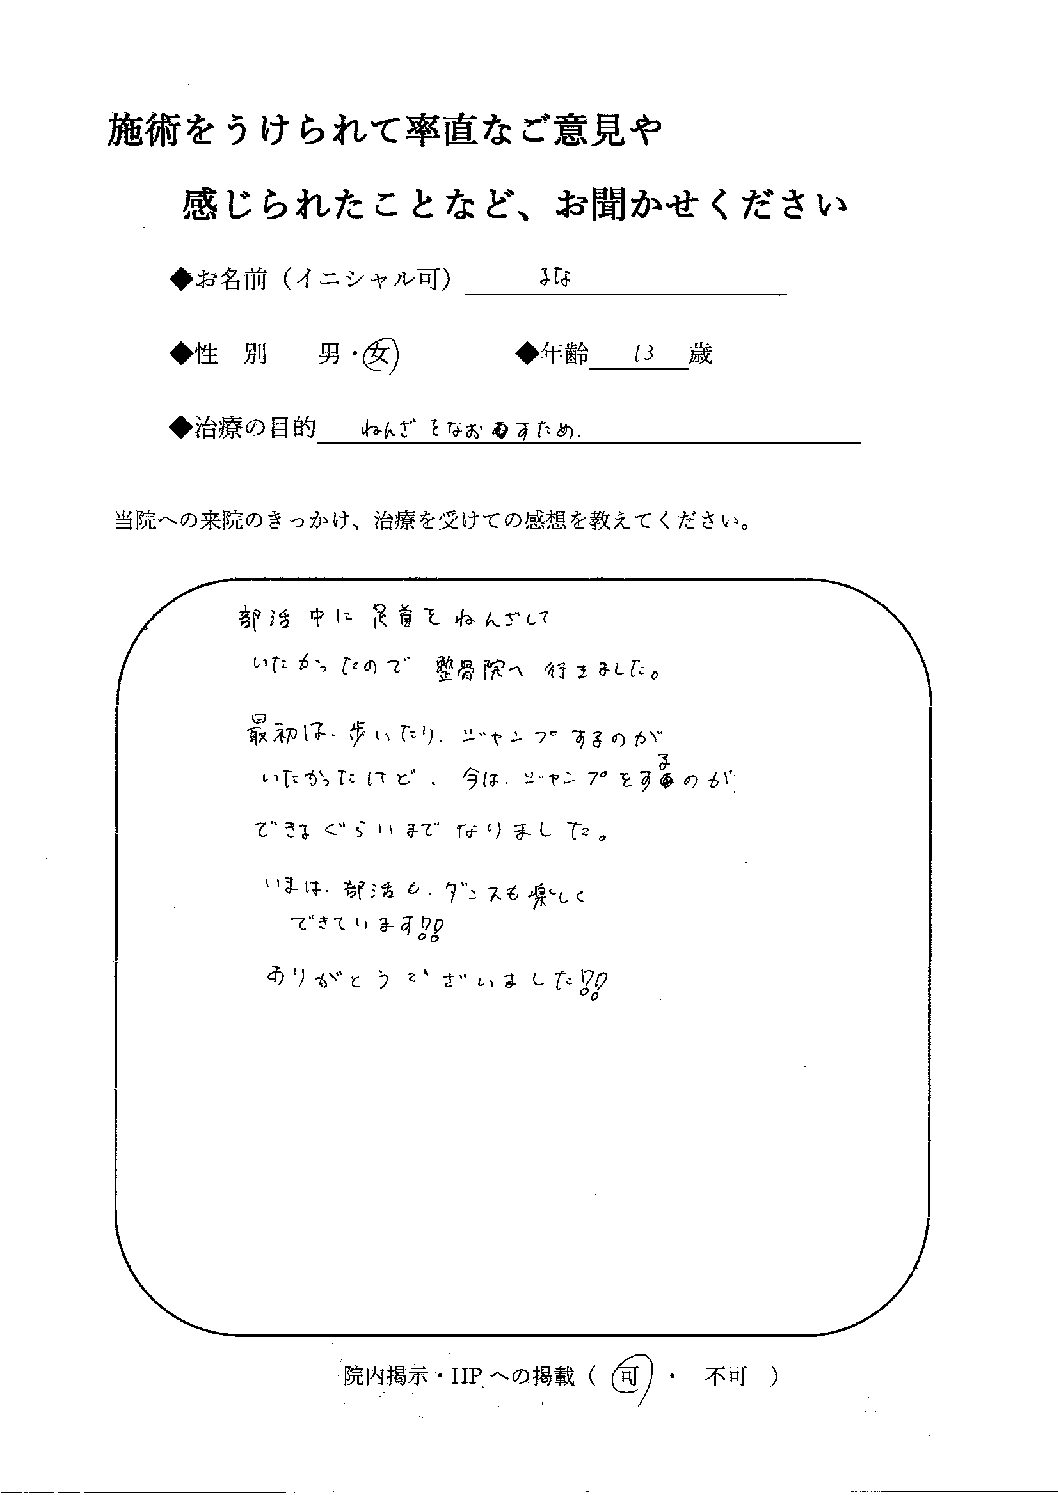 施術をうけられて率直なご意見や
感じられたことなど、お聞かせください
◆お名前（イニシャル可） るな
◆性 別 男・女 ◆年齢 13 歳
◆治療の目的 ねんざをなおすため.
当院への来院のきっかけ、治療を受けての感想を教えてください。
部活中に足首をねんざして
いたかったので整骨院へ行きました。
最初は、歩いたり、ジャンプするのが
いたかったけど、今は、ジャンプをするのが
できるぐらいまでなりました。
いまは、部活も、ダンスも楽しく
できています!!
ありがとうございました!!
院内掲示・HPへの掲載（ 可 ・ 不可 ）